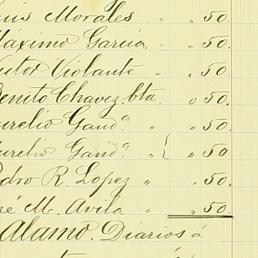 uis Morales " " 50.
Máximo Garcia " " 50.
ictor Violante " " 50.
Benito Chavez. bta. " 50.
Aurelio Gandª " " 50.
Aurelio Gandª. " " 50
edro R. Lopez " " 50.
sé M. Avila " " 50
Alamo. Diarios á